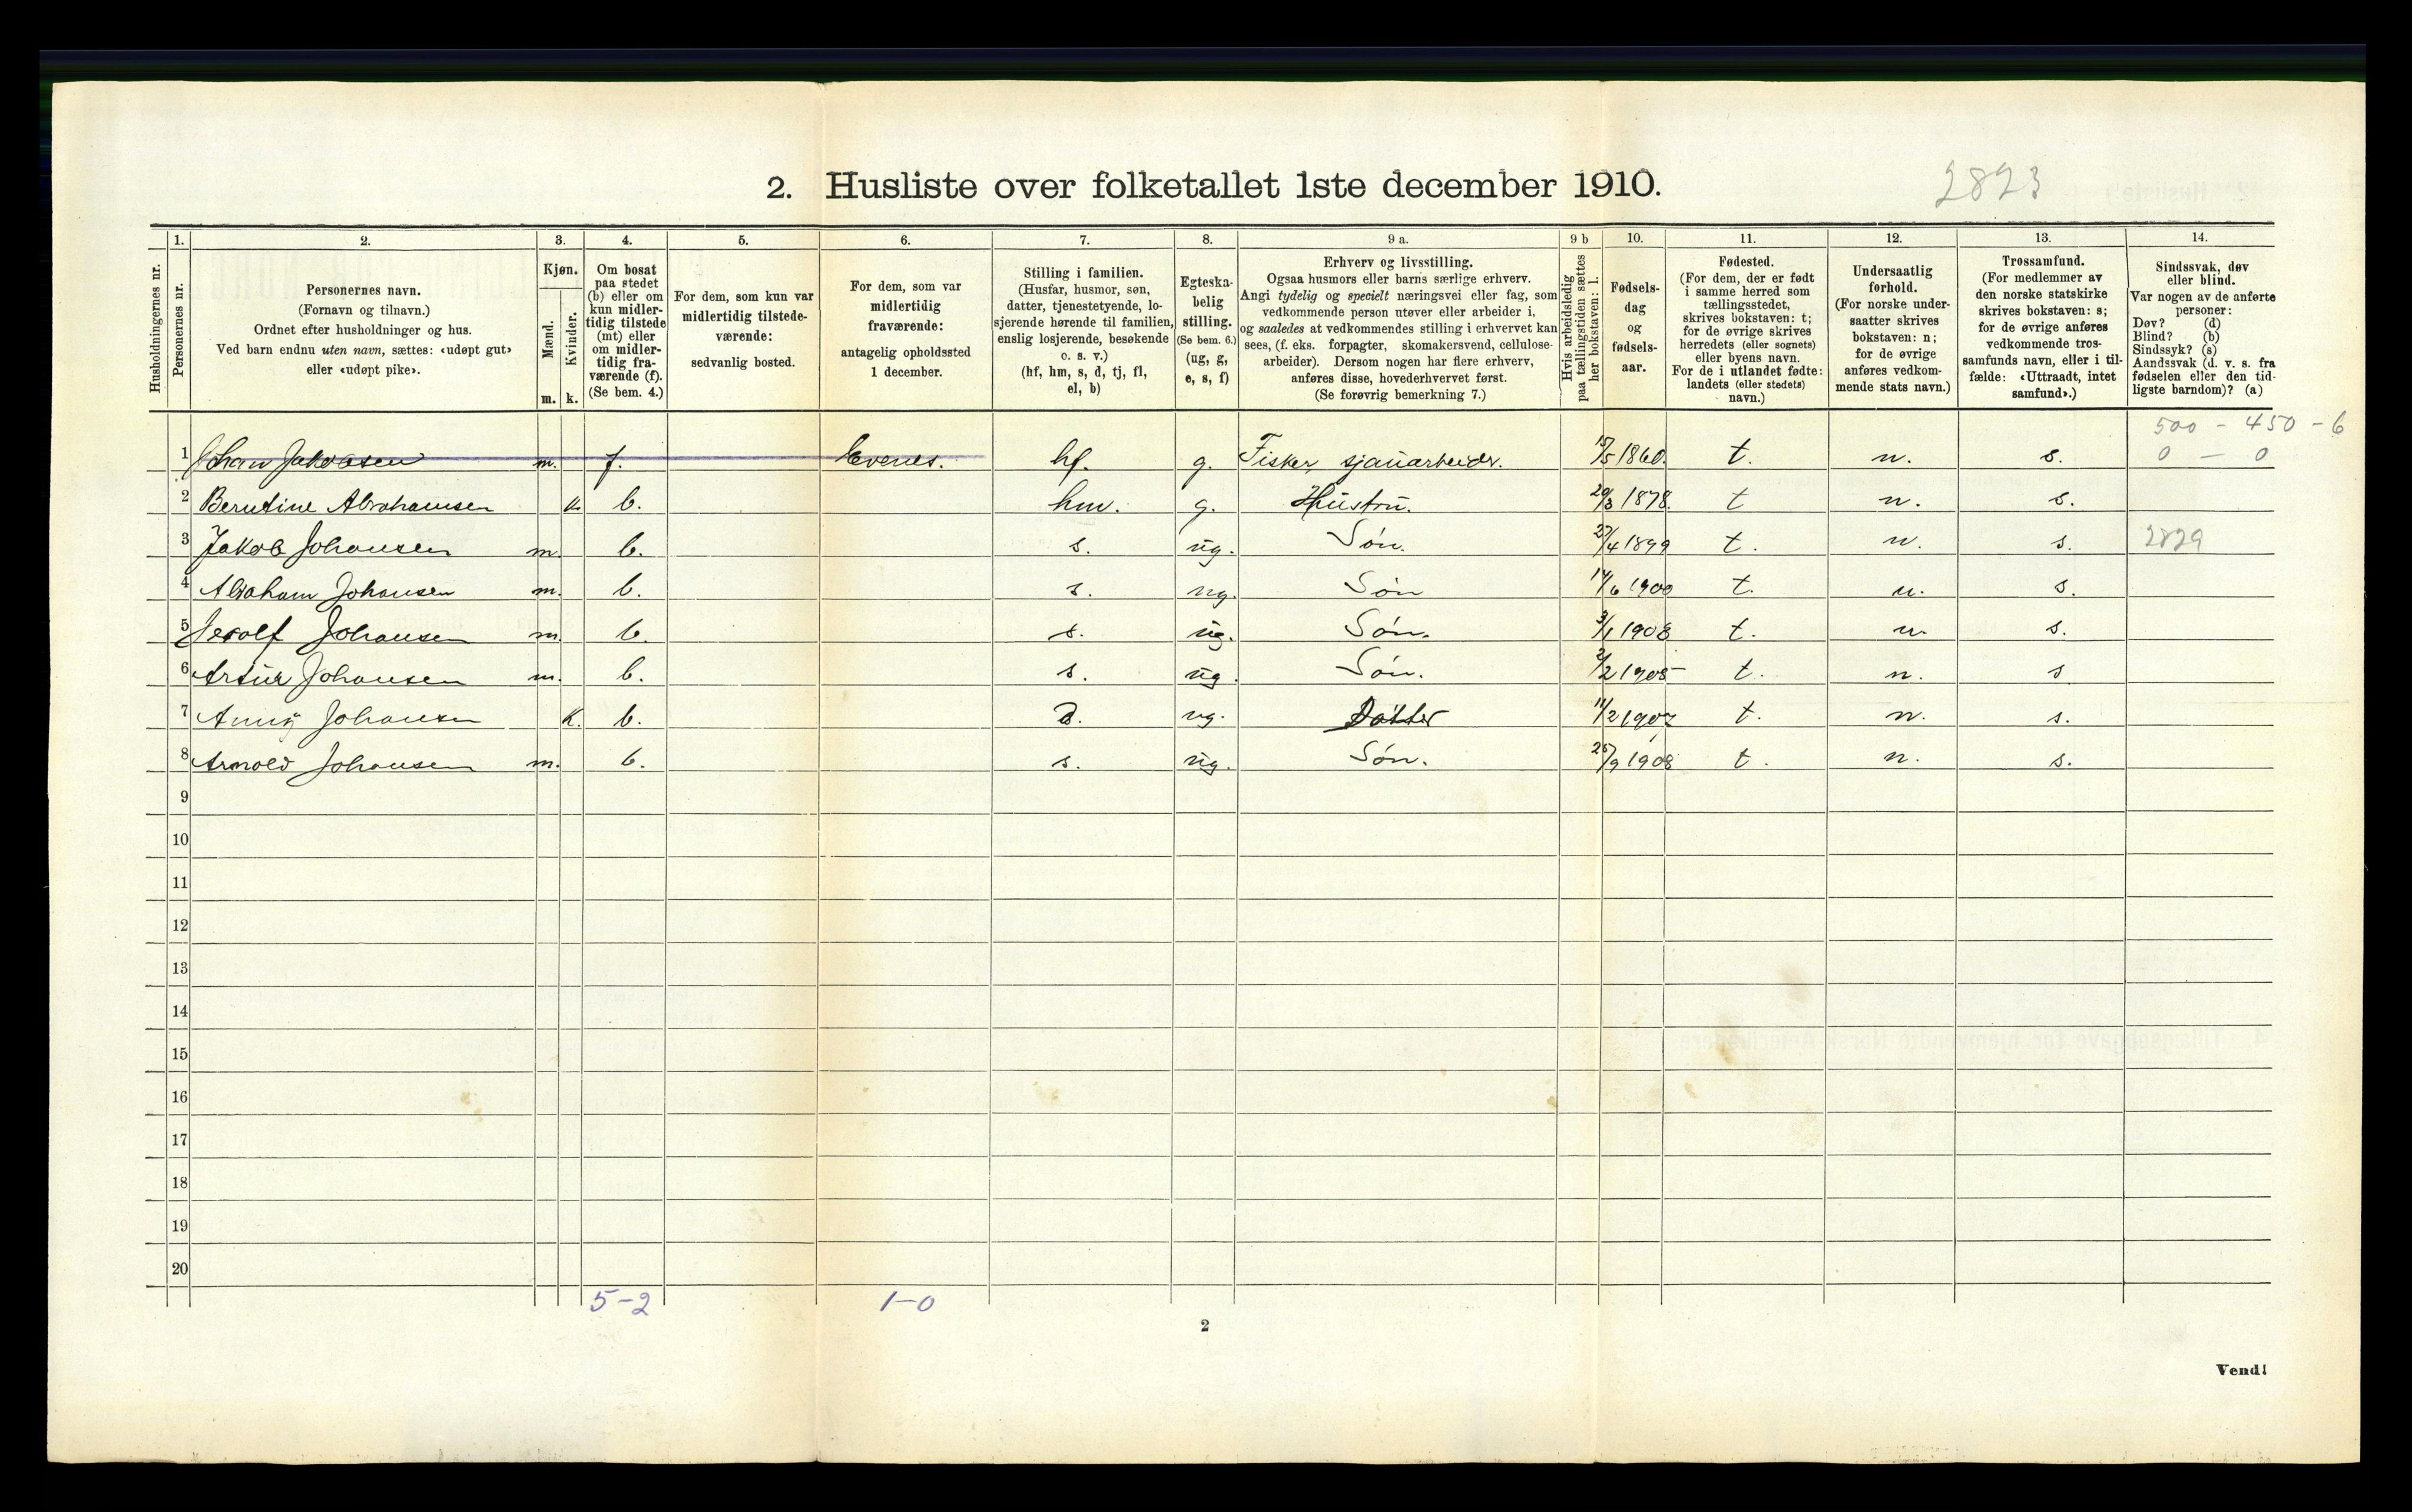 2. Husliste over folketallet 1ste december 1910.
2823
Husholdningernes nr.
1.
Personernes nr.
2.
Personernes navn.
(Fornavn og tilnavn.)
Ordnet efter husholdninger og hus.
Ved barn endnu uten navn, sættes: «udøpt gut»
eller «udøpt pike».
3.
Kjøn.
Mænd.
Kvinder.
m. k.
4.
Om bosat
paa stedet
(b) eller om
kun midler-
tidig tilstede
(mt) eller
om midler-
tidig fra-
værende (f).
(Se bem. 4.)
5.
For dem, som kun var
midlertidig tilstede-
værende:
sedvanlig bosted.
6.
For dem, som var
midlertidig
fraværende:
antagelig opholdssted
1 december.
7.
Stilling i familien.
(Husfar, husmor, søn,
datter, tjenestetyende, lo-
sjerende hørende til familien,
enslig losjerende, besøkende
o. s. v.)
(hf, hm, s, d, tj, fl,
el, b)
8.
Egteska-
belig
stilling.
(Se bem. 6.)
(ug, g,
e, s, f)
9 a.
Erhverv og livsstilling.
Ogsaa husmors eller barns særlige erhverv.
Angi tydelig og specielt næringsvei eller fag, som
vedkommende person utøver eller arbeider i,
og saaledes at vedkommendes stilling i erhvervet kan
sees, (f. eks. forpagter, skomakersvend, cellulose-
arbeider). Dersom nogen har flere erhverv,
anføres disse, hovederhvervet først.
(Se forøvrig bemerkning 7.)
9 b
Hvis arbeidsledig
paa tællingstiden sættes
her bokstaven: l.
10.
Fødsels-
dag
og
fødsels-
aar.
11.
Fødested.
(For dem, der er født
i samme herred som
tællingsstedet,
skrives bokstaven: t;
for de øvrige skrives
herredets (eller sognets)
eller byens navn.
For de i utlandet fødte:
landets (eller stedets)
navn.)
12.
Undersaatlig
forhold.
(For norske under-
saatter skrives
bokstaven: n;
for de øvrige
anføres vedkom-
mende stats navn.)
13.
Trossamfund.
(For medlemmer av
den norske statskirke
skrives bokstaven: s;
for de øvrige anføres
vedkommende tros-
samfunds navn, eller i til-
fælde: «Uttraadt, intet
samfund».)
14.
Sindssvak, døv
eller blind.
Var nogen av de anførte
personer:
Døv? (d)
Blind? (b)
Sindssyk? (s)
Aandssvak (d. v. s. fra
fødselen eller den tid-
ligste barndom)? (a)
500 - 450 - 6
1 Johan Jakobsen m. f. Evenes. hf. g. Fisker, sjauarbeidr. 15/5 1860. t. n. s. 0 - 0
2 Berntine Abrahamsen k. b. hm. g. Hustru. 20/3 1878. t n. s.
3 Jakob Johansen m. b. s. ug. Søn. 27/4 1899 t. n. s. 2829
4 Abraham Johansen m. b. s. ug. Søn 14/6 1900 t. n. s.
5 Johansen m. b. s. ug. Søn. 3/1 1903 t. n. s.
6 Artur Johansen m. b. s. ug. Søn. 2/2 1905 t. n. s
7 Anny Johansen K. b. D. ug. Datter 11/2 1907 t. n. s.
8 Arnold Johansen m. b. s. ug. Søn. 25/9 1908 t. n. s.
9
10
11
12
13
14
15
16
17
18
19
20
5-2 1-0
2
Vend!